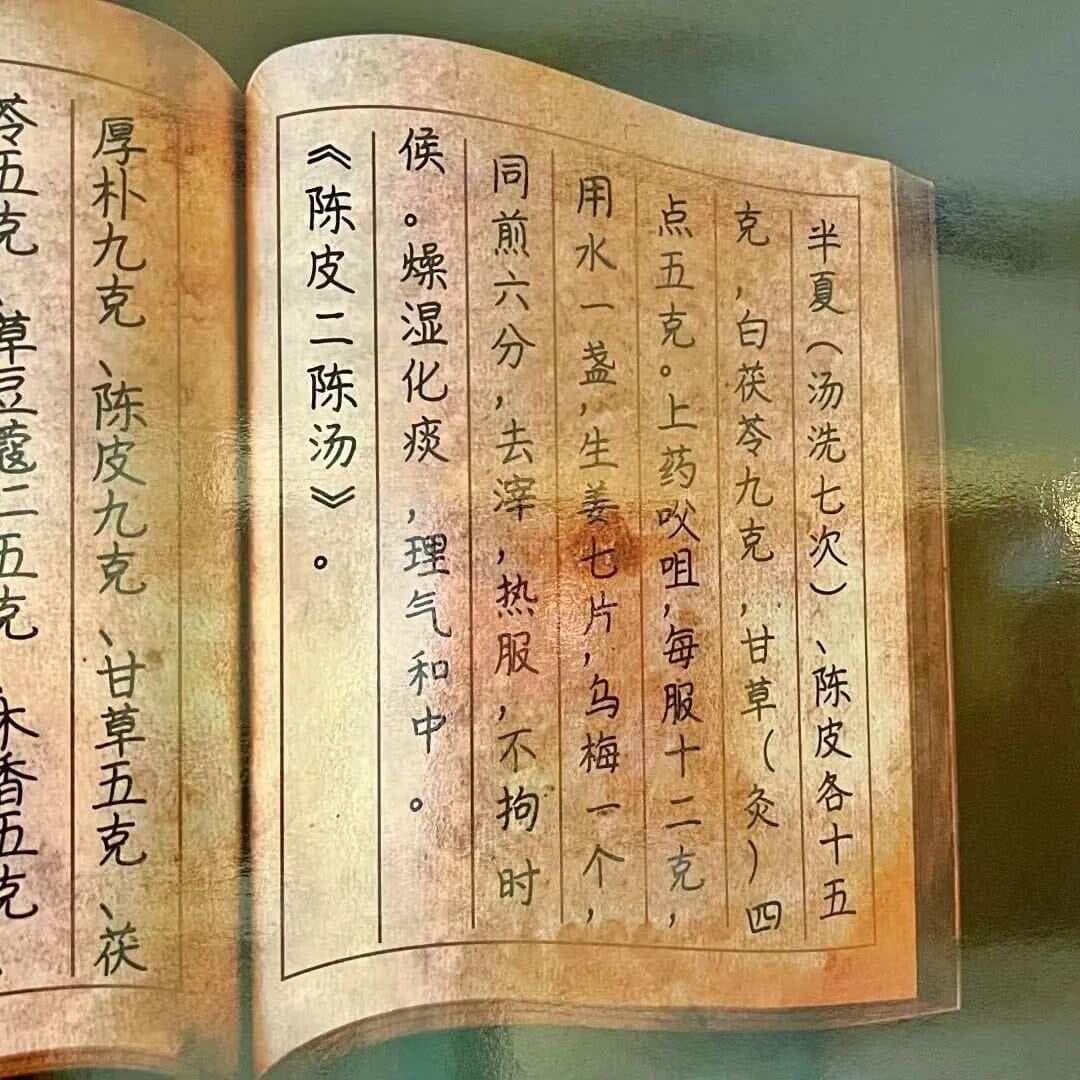 半夏（汤洗七次）、陈皮各十五
克，白茯苓九克，甘草（灸）四
点五克。上药㕮咀，每服十二克，
用水一盏，生姜七片，乌梅一个，
同煎六分，去滓，热服，不拘时
侯。燥湿化痰，理气和中。
《陈皮二陈汤》。
厚朴九克、陈皮九克、甘草五克、茯
苓五克、草豆蔻二五克、木香五克、